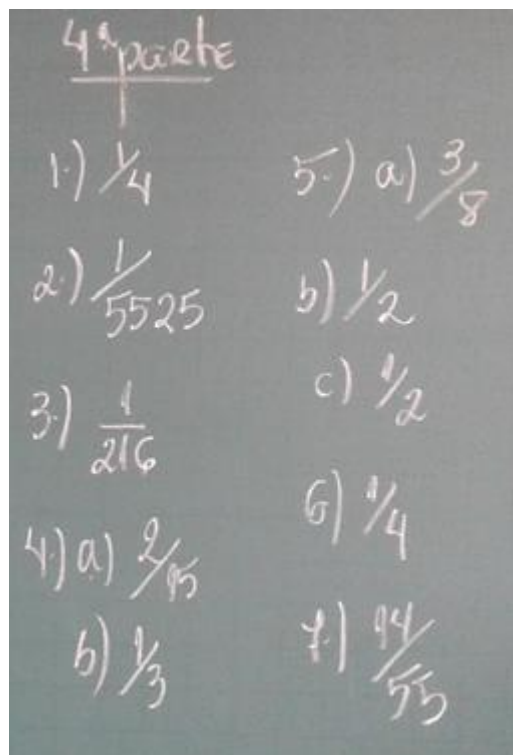 4ª parte
1.) 1/4
2.) 1/5525
3.) 1/216
4.) a) 2/15
b) 1/3
5.) a) 3/8
b) 1/2
c) 1/2
6) 1/4
7.) 14/55